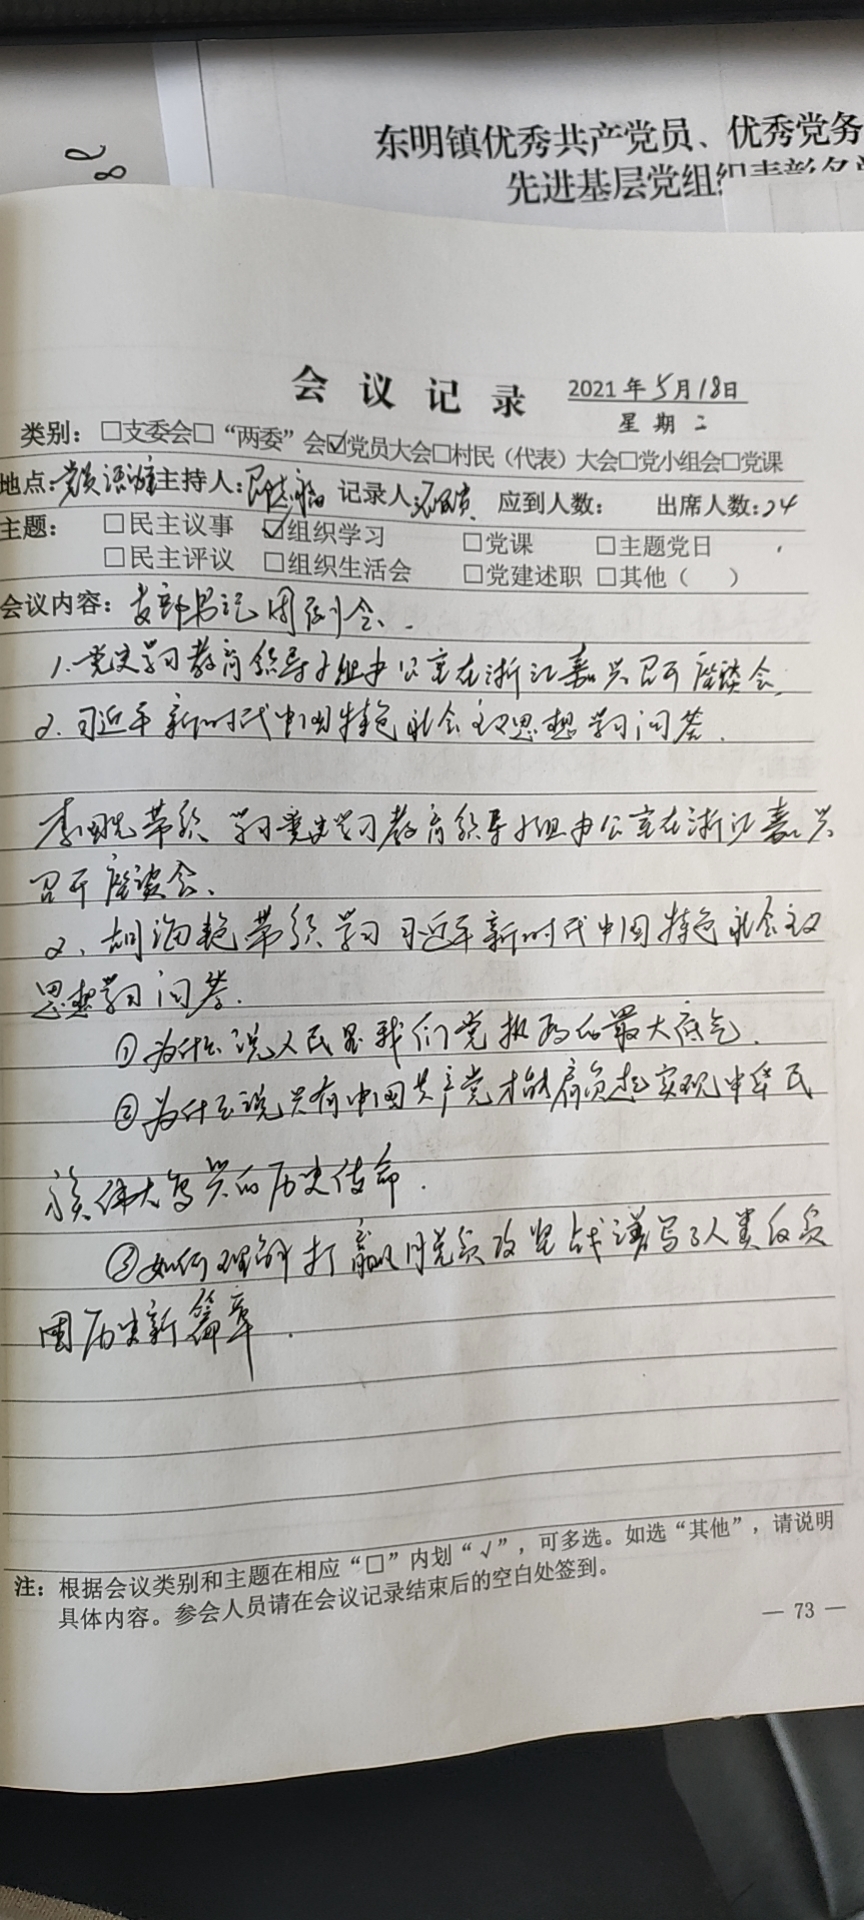 28
东明镇优秀共产党员、优秀党务
先进基层党组织表彰名
会议记录 2021年5月18日
星期二
类别：□支委会□“两委”会☑党员大会□村民（代表）大会□党小组会□党课
地点：党员活动室 主持人： 记录人： 应到人数： 出席人数：24
主题：□民主议事 ☑组织学习 □党课 □主题党日
□民主评议 □组织生活会 □党建述职 □其他（ ）
会议内容：支部书记周例会、.
1.党史学习教育领导小组办公室在浙江嘉兴召开座谈会.
2.习近平新时代中国特色社会主义思想学习问答.
带领学习党史学习教育领导小组办公室在浙江嘉兴
召开座谈会、
2、胡海艳带领学习习近平新时代中国特色社会主义
思想学习问答.
①为什么说人民是我们党执政的最大底气.
②为什么说只有中国共产党才能肩负起实现中华民
族伟大复兴的历史使命.
③如何理解打赢脱贫攻坚战谱写了人类反贫
困历史新篇章.
注：根据会议类别和主题在相应“□”内划“√”，可多选。如选“其他”，请说明
具体内容。参会人员请在会议记录结束后的空白处签到。
— 73 —